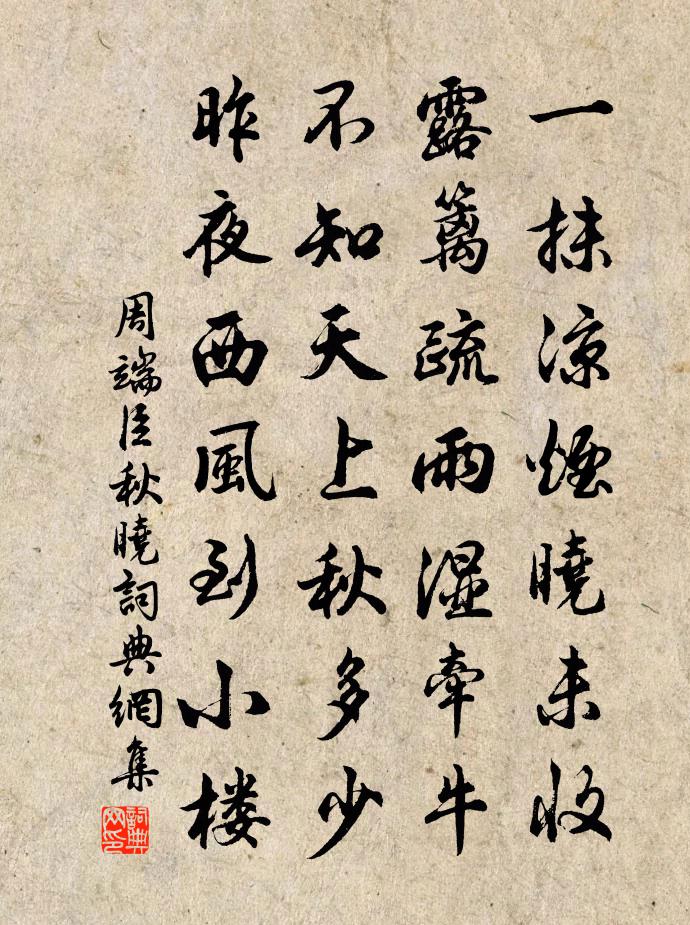 一抹涼煙曉未收
露籬疏雨湿牽牛
不知天上秋多少
昨夜西風到小楼
周端臣秋曉詞典網集
詞典网印